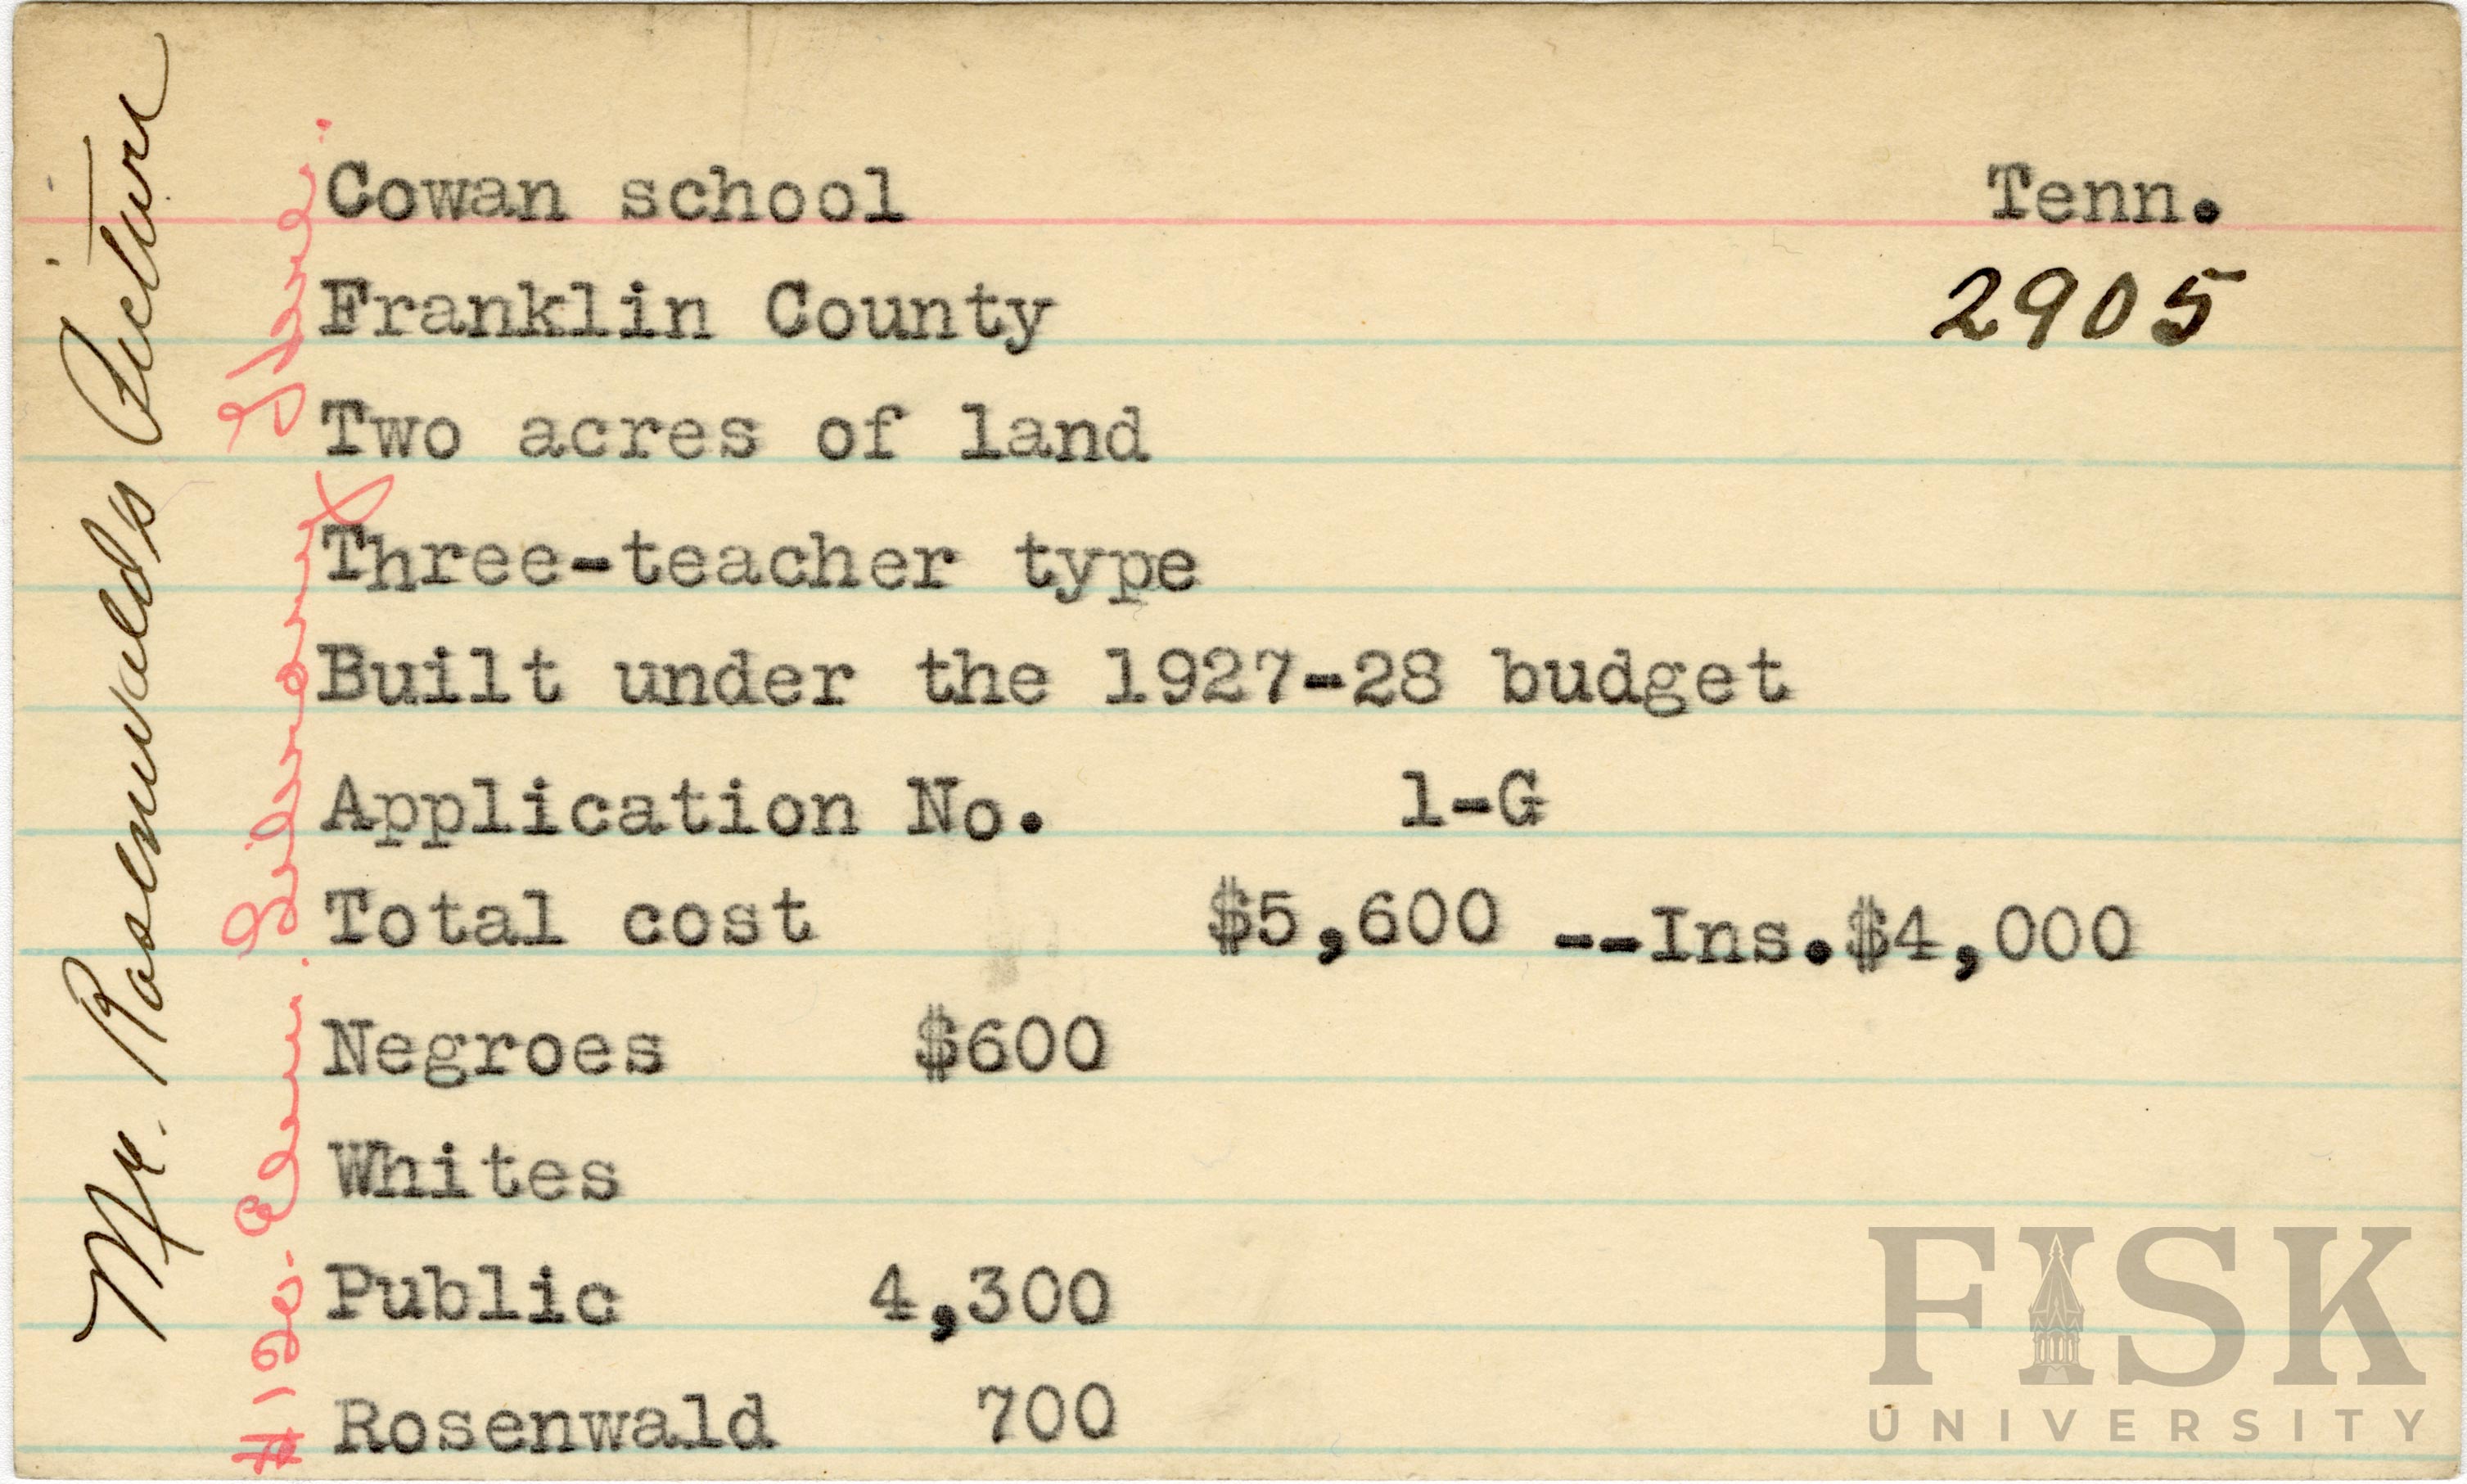 Cowan school Tenn.
Franklin County 2905
Two acres of land
Three-teacher type
Built under the 1927-28 budget
Application No. 1-G
Total cost $5,600 --Ins.$4,000
Negroes $600
Whites
Public 4,300
Rosenwald 700
Mr. Rosenwald's Picture
#120. Elem.
FISK
UNIVERSITY